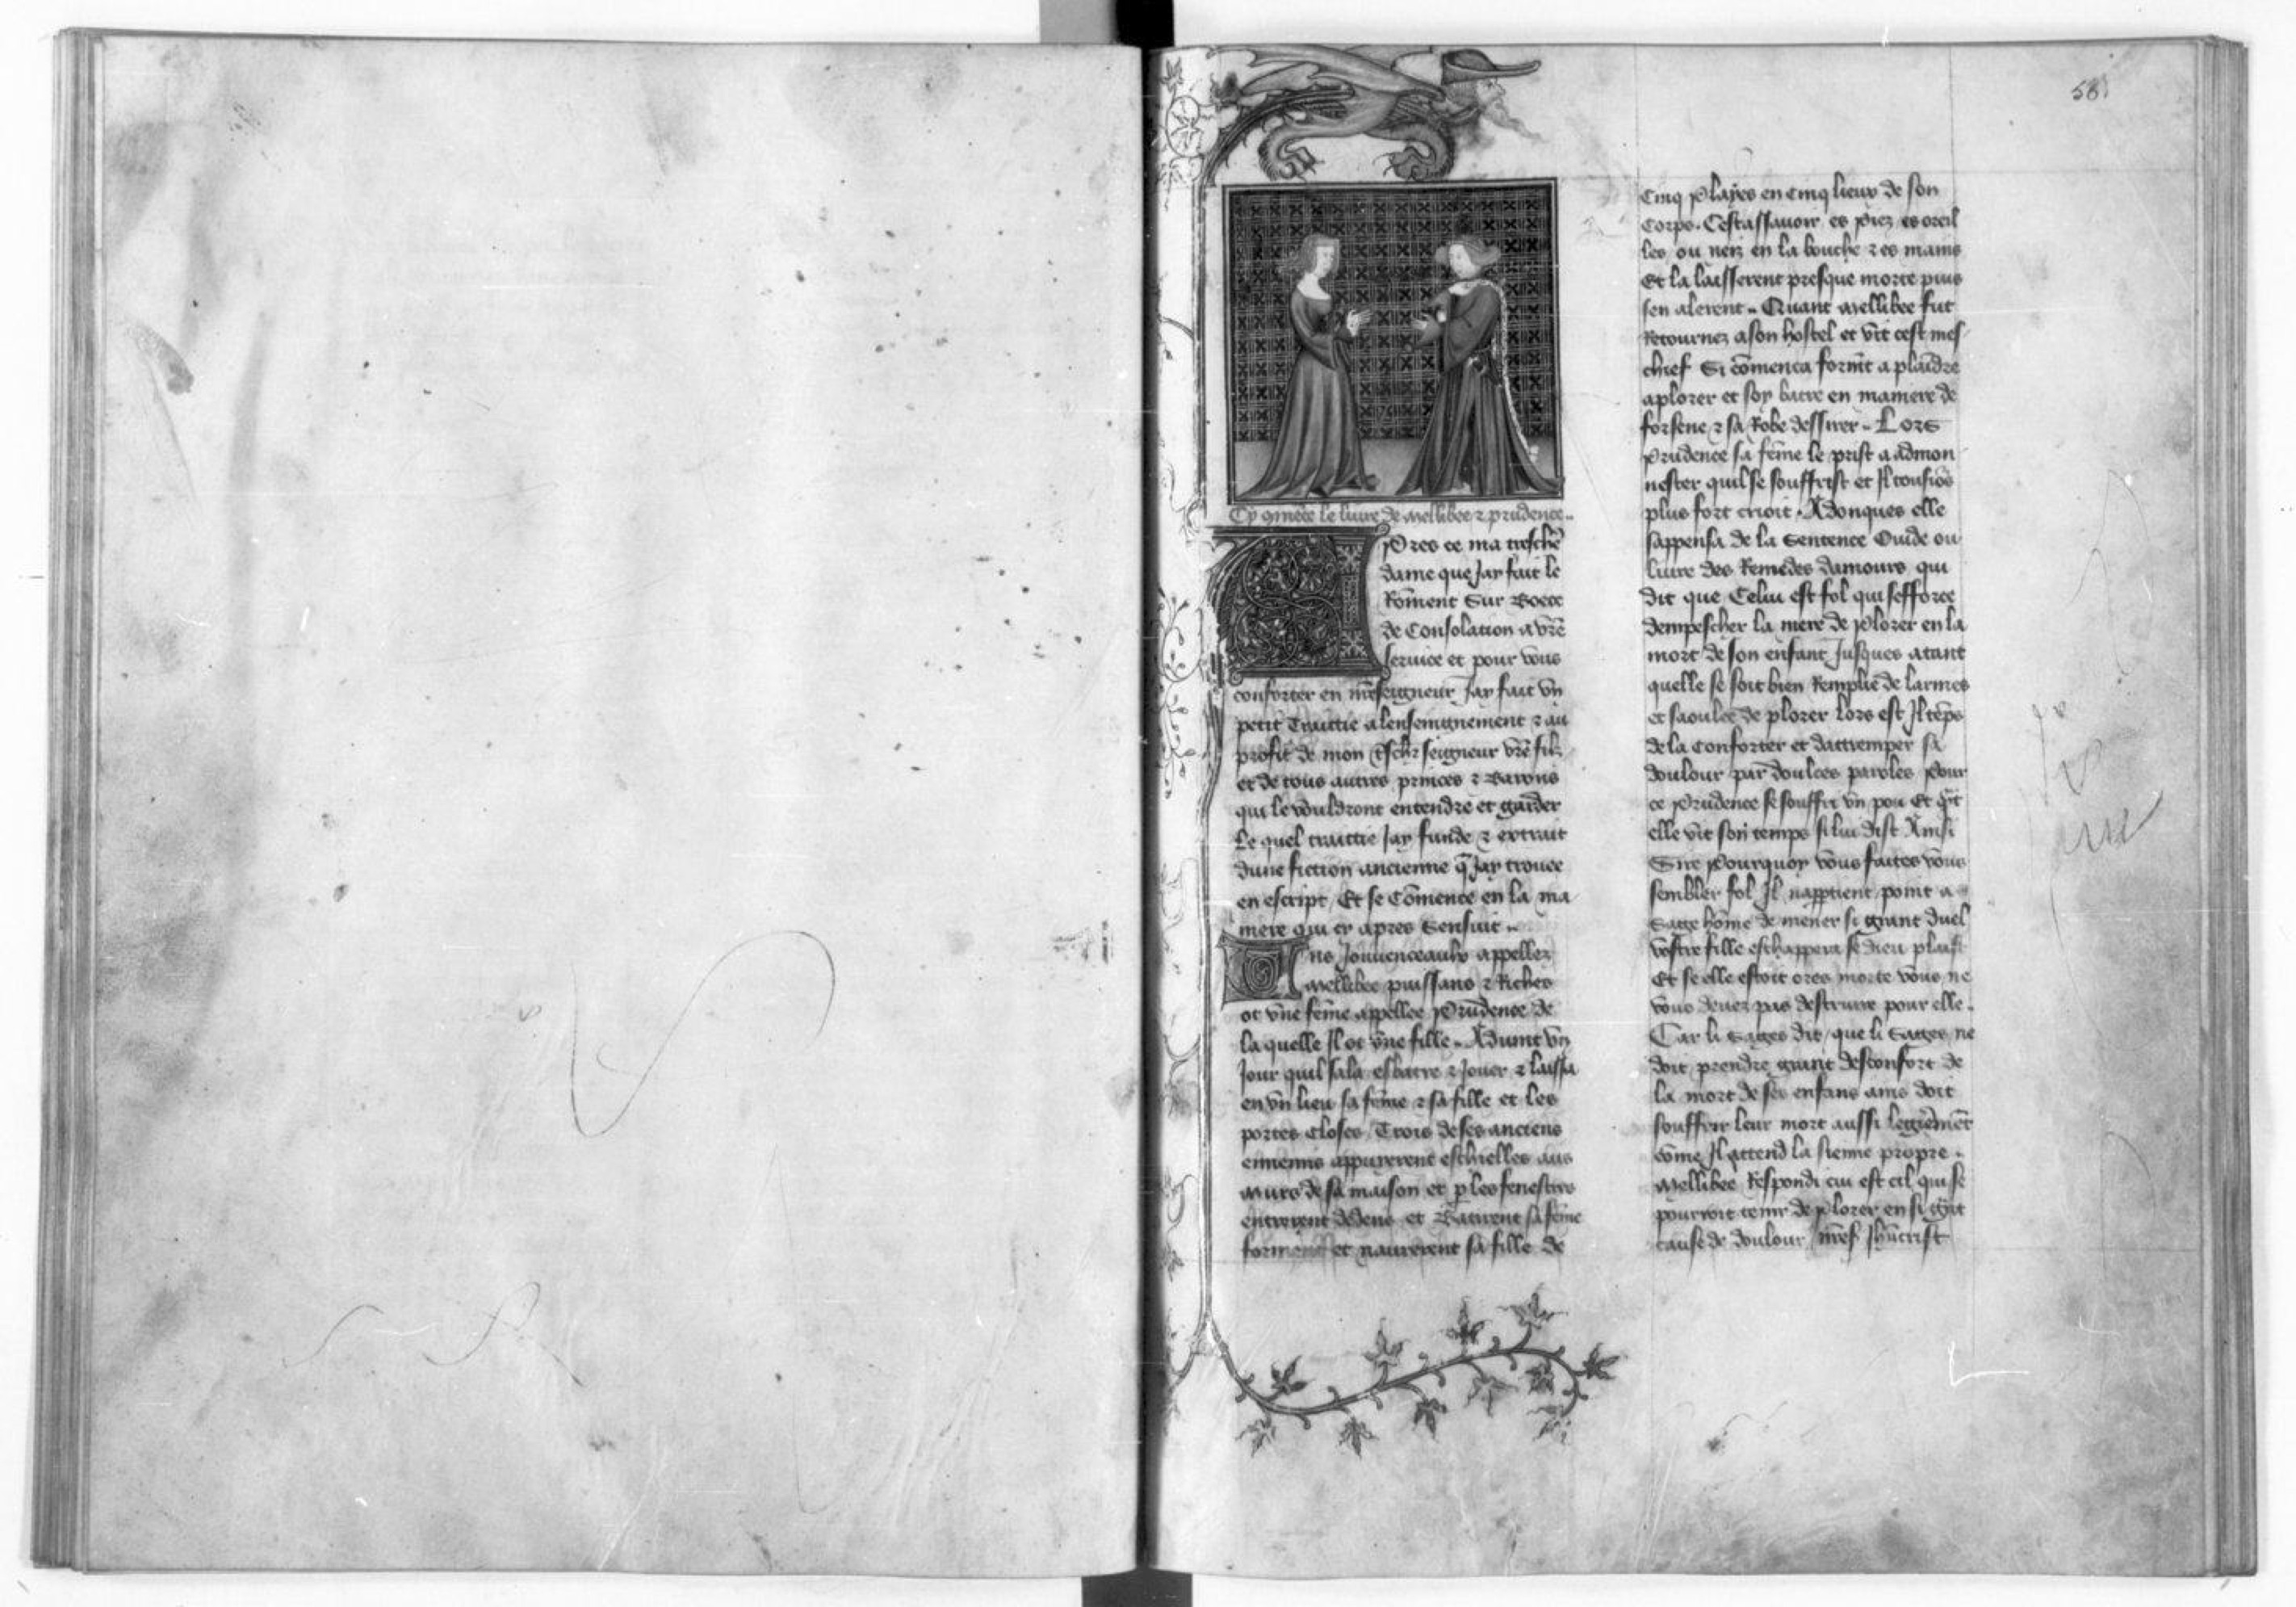 58
Cy 9mēce le livre de mellibee ⁊ prudence..
APres ce ma tresche͂
dame que Jay fait le
Rōment Sur Boece
de Consolation a vr̄e
service et pour vous
conforter en nr̄eseigneur Jay fait vn
petit Traittie a lenseingnement ⁊ au
profit de mon tsch͛r seigneur vr̄e filz
et de tous autres princes ⁊ Barons
qui le vouldront entendre et garder
Le quel traittie Jay funde ⁊ extrait
dune fiction ancienne q̄ Jay trouee
en escript / Et se Cōmence en la ma
niere qui cy apres Sensuit ..
Uns Jouuenceaulx appellez
mellibee puissans ⁊ Riches
ot vne fēme appellee Prudence de
la quelle Jl ot vne fille . Aduint vn
Jour quil sala esbatre ⁊ Jouer ⁊ laissa
en vn lieu sa fēme ⁊ sa fille et les
portes closes / Trois de ses anciens
ennemis appuyerent eschielles aus
murs de sa maison et ꝑ les fenestres
entrerent dedens et Batirent sa fēme
forment et naurerent sa fille de
Cinq Playes en cinq lieux de son
Corps . Cestassauoir es piez es oreil
les ou neiz en la bouche ⁊ es mains
Et la laisserent presque morte puis
sen alerent .. Quant mellibee fut
Retournez a son hostel et vit cest mes
chief Si cōmenca formt̄ a plaīdre
a plorer et soy batre en maniere de
forsene ⁊ sa Robe dessirer .. Lors
Prudence sa fēme le prist a admon
nester quil se souffrist et Jl tousio͛s
plus fort crioit . Adonques elle
sappensa de la Sentence Ouide ou
liure des Remedes damours qui
dit que Celui est fol qui sefforce
dempescher la mere de Plorer en la
mort de son enfant Jusques atant
quelle se soit bien Remplie de larmes
et saoulee de plorer lors est Jl tēps
de la conforter et dattremper sa
doulour par doulces paroles Pour
ce Prudence se souffri vn pou Et qt̄
elle vit son temps si lui dist Ainsi
Sire Pourquoy vous faites vous
sembler fol Jl nappꝑtient point a
Sage hōme de mener si grant duel
vostre fille eschappera se dieu plaist
Et se elle estoit ores morte vous ne
vous deuez pas destruire pour elle .
Car li Sages dit / que li Sages ne
doit prendre grant desconfort de
la mort de ses enfans ains doit
souffrir leur mort aussi legierem̄t
cōme Jl attend la sienne propre .
mellibee Respondi cui est cil qui se
pourroit tenir de Plorer en si gr̄t
cause de doulour nr̄es Jhūcrist